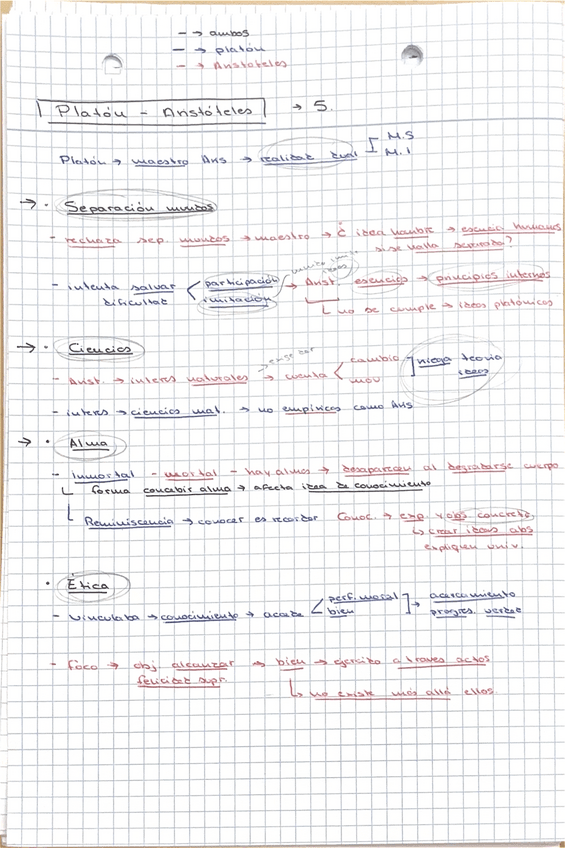 - → ambos
- → platón
- → Aristóteles
Platón - Aristóteles → 5.
Platón → maestro Aris → realidad dual [ M.S
M.I
→ · Separación mundos
- rechaza sep. mundos → maestro → ¿ idea hombre → esencia humanos
si se halla separada?
- intenta salvar dificultad < participación
imitación → Arist. esencias → principios internos
ideas
↳ no se cumple → ideas platónicas
→ · Ciencias
- Arist. → interes naturales → cuenta < cambio
mov ] niega teoria ideas
- interes → ciencias mat. → no empíricos como Aris
→ · Alma
- inmortal - mortal - hay almas → desaparecen al degradarse cuerpo
↳ forma concebir alma → afecta idea de conocimiento
↳ Reminiscencia → conocer es recordar Conoc. → exp. y obs concreto
↳ crear ideas abs
expliquen univ.
· Ética
- vinculaba → conocimiento → accede < perf. moral
bien ] → acercamiento
progres. verdad
- foco → obj alcanzar felicidad supr. → bien → ejercito a traves actos
↳ no existe más allá ellos.